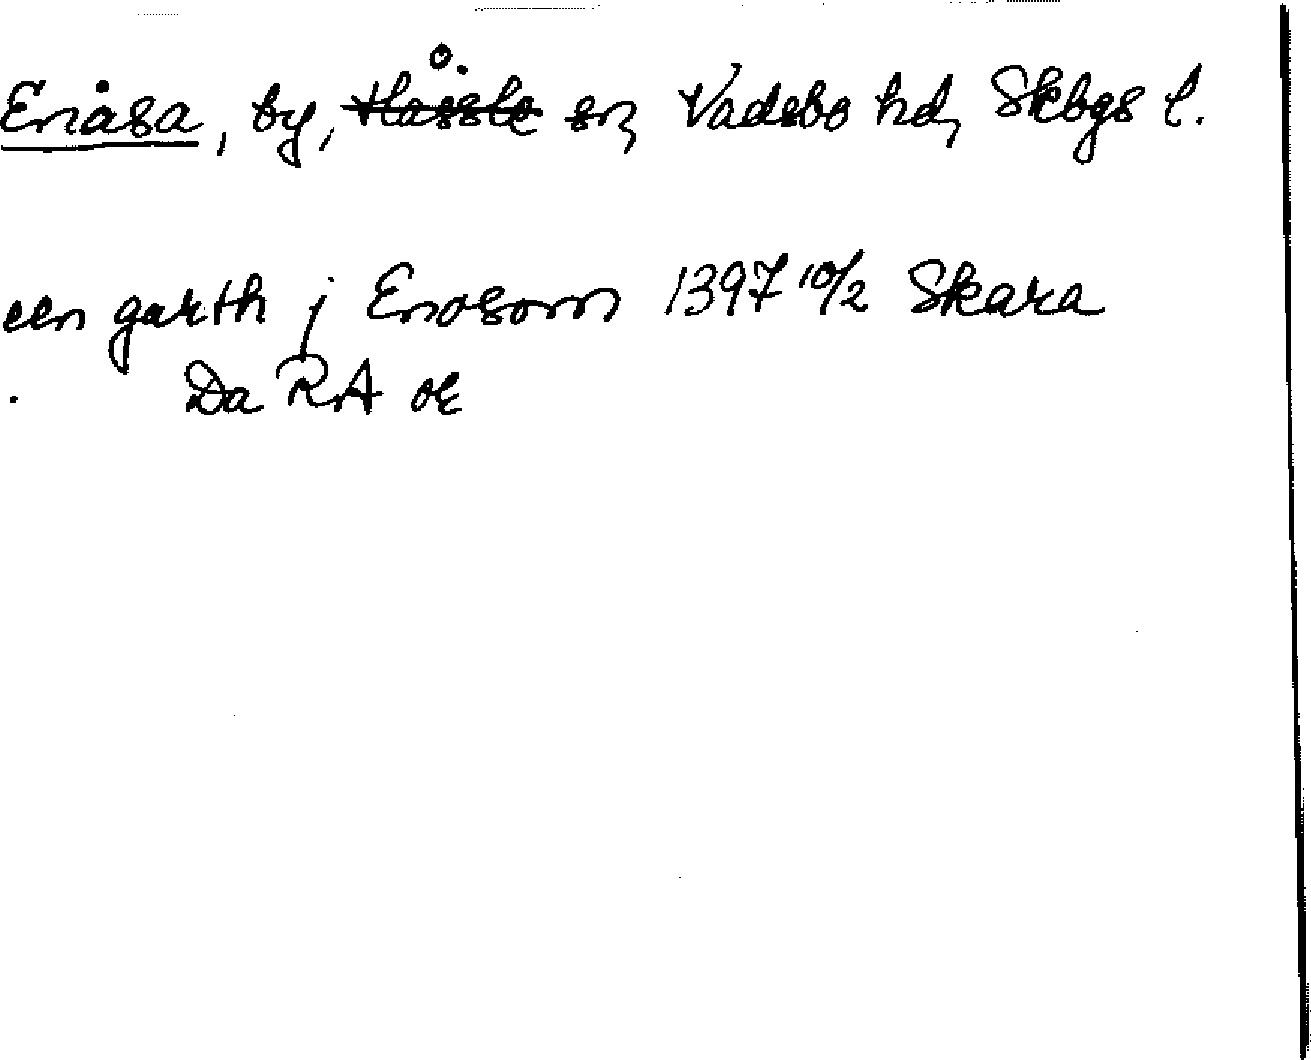 Enåsa, by, o. Hassle sn, Vadsbo hd, Skbgs l.
een garth j Enosom 1397 10/2 Skara
Da RA or